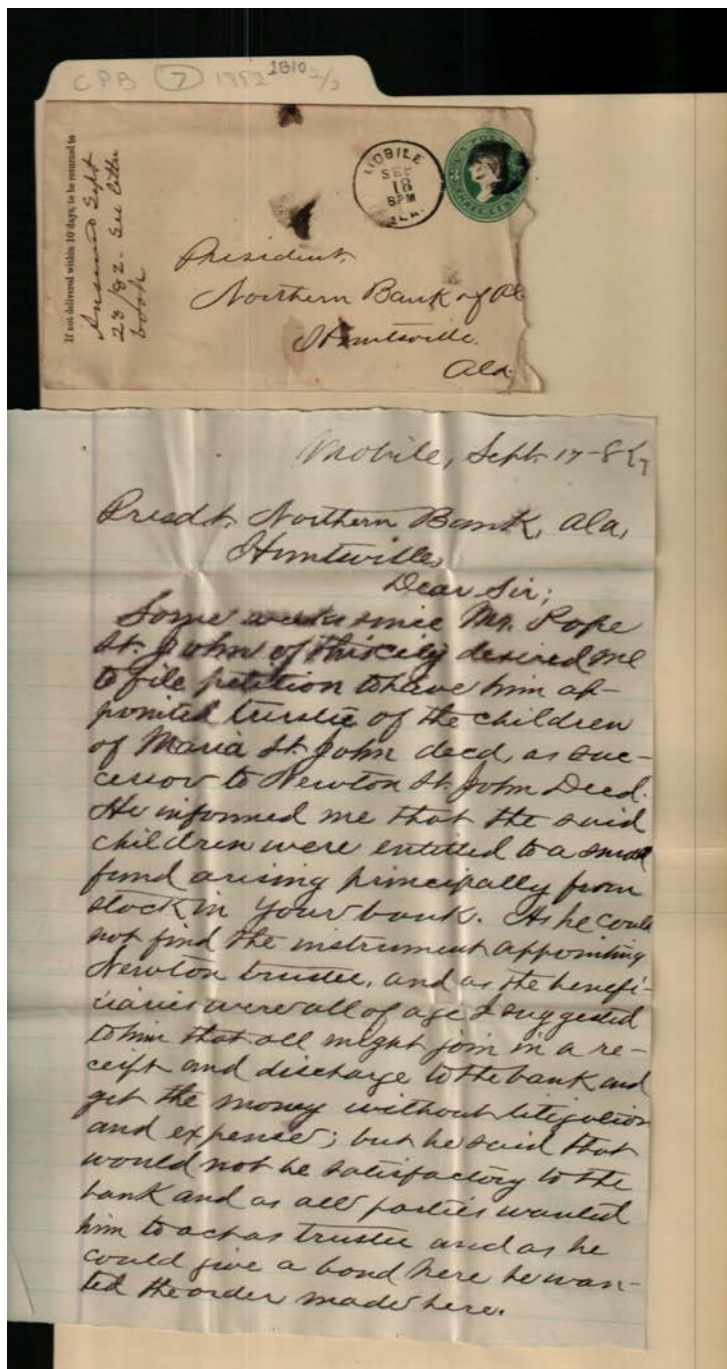 CPB 7 1882 1810 2/2
If not delivered within 10 days, to be returned to
Answered Sept
23/82 - See letter
book
MOBILE
SEP
18
8PM
ALA.
U.S. POSTAGE
THREE CENTS
President.
Northern Bank of Al
Huntsville.
Ala.
Mobile, Sept. 17-82
Presdt. Northern Bank, Ala,
Huntsville,
Dear Sir;
Some weeks since Mr. Pope
St. John of this city desired me
to file petition to have him ap-
pointed trustee of the children
of Maria St. John decd, as suc-
cessor to Newton St. John Decd.
He informed me that the said
children were entitled to a small
fund arising principally from
stock in your bank. As he could
not find the instrument appointing
Newton trustee, and as the benefi-
ciaries were all of age I suggested
to him that all might join in a re-
ceipt and discharge to the bank and
get the money without litigation
and expense; but he said that
would not be satisfactory to the
bank and as all parties wanted
him to act as trustee and as he
could give a bond here he wan-
ted the order made here.